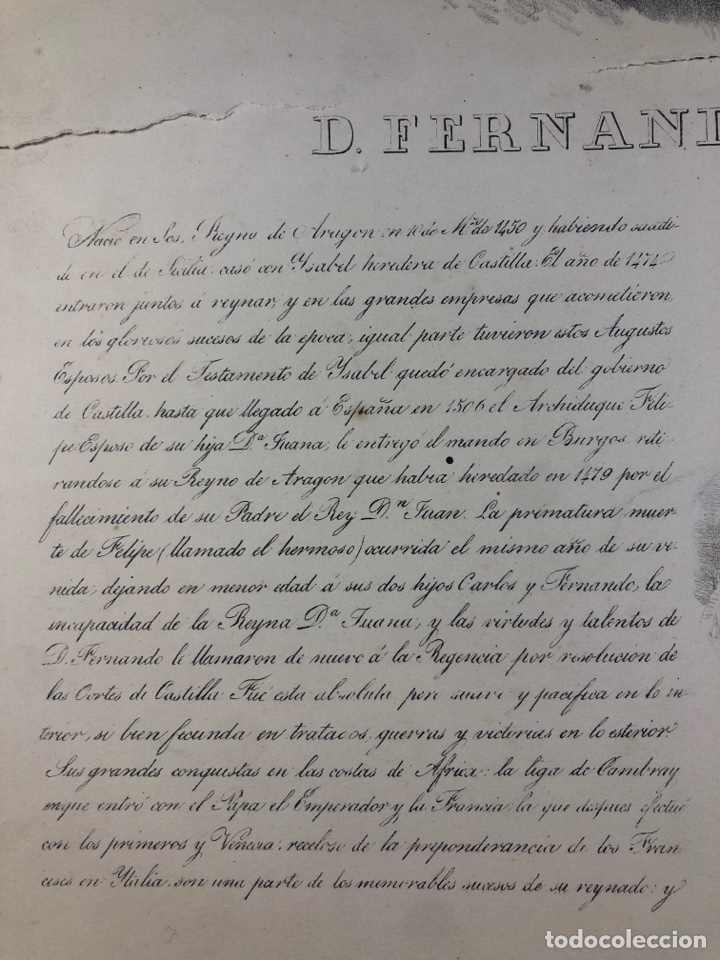 D. FERNAND
Nació en Sos, Reyno de Aragon en 10 de M.zo de 1450 y habiendo sucedi-
do en el de Sicilia, casó con Ysabel heredera de Castilla. El año de 1474
entraron juntos á reynar, y en las grandes empresas que acometieron,
en los gloriosos sucesos de la epoca, igual parte tuvieron estos Augustos
Esposos. Por el Testamento de Ysabel quedó encargado del gobierno
de Castilla, hasta que llegado á España en 1506 el Archiduque Feli-
pe Esposo de su hija D.a Juana, le entregó el mando en Burgos, reti-
randose á su Reyno de Aragon que habia heredado en 1479 por el
fallecimiento de su Padre el Rey D.n Juan. La prematura muer-
te de Felipe (llamado el hermoso) ocurrida el mismo año de su ve-
nida, dejando en menor edad á sus dos hijos Carlos y Fernando, la
incapacidad de la Reyna D.a Juana, y las virtudes y talentos de
D. Fernando le llamaron de nuevo á la Regencia por resolucion de
las Cortes de Castilla. Fué esta absoluta pero suave y pacifica en lo in-
terior, si bien fecunda en tratados, guerras y victorias en lo esterior.
Sus grandes conquistas en las costas de Africa: la liga de Cambray
en que entró con el Papa el Emperador y la Francia: la que despues efectuó
con los primeros y Venecia, receloso de la preponderancia de los Fran
ceses en Ytalia, son una parte de los memorables sucesos de su reynado: y
todocoleccion